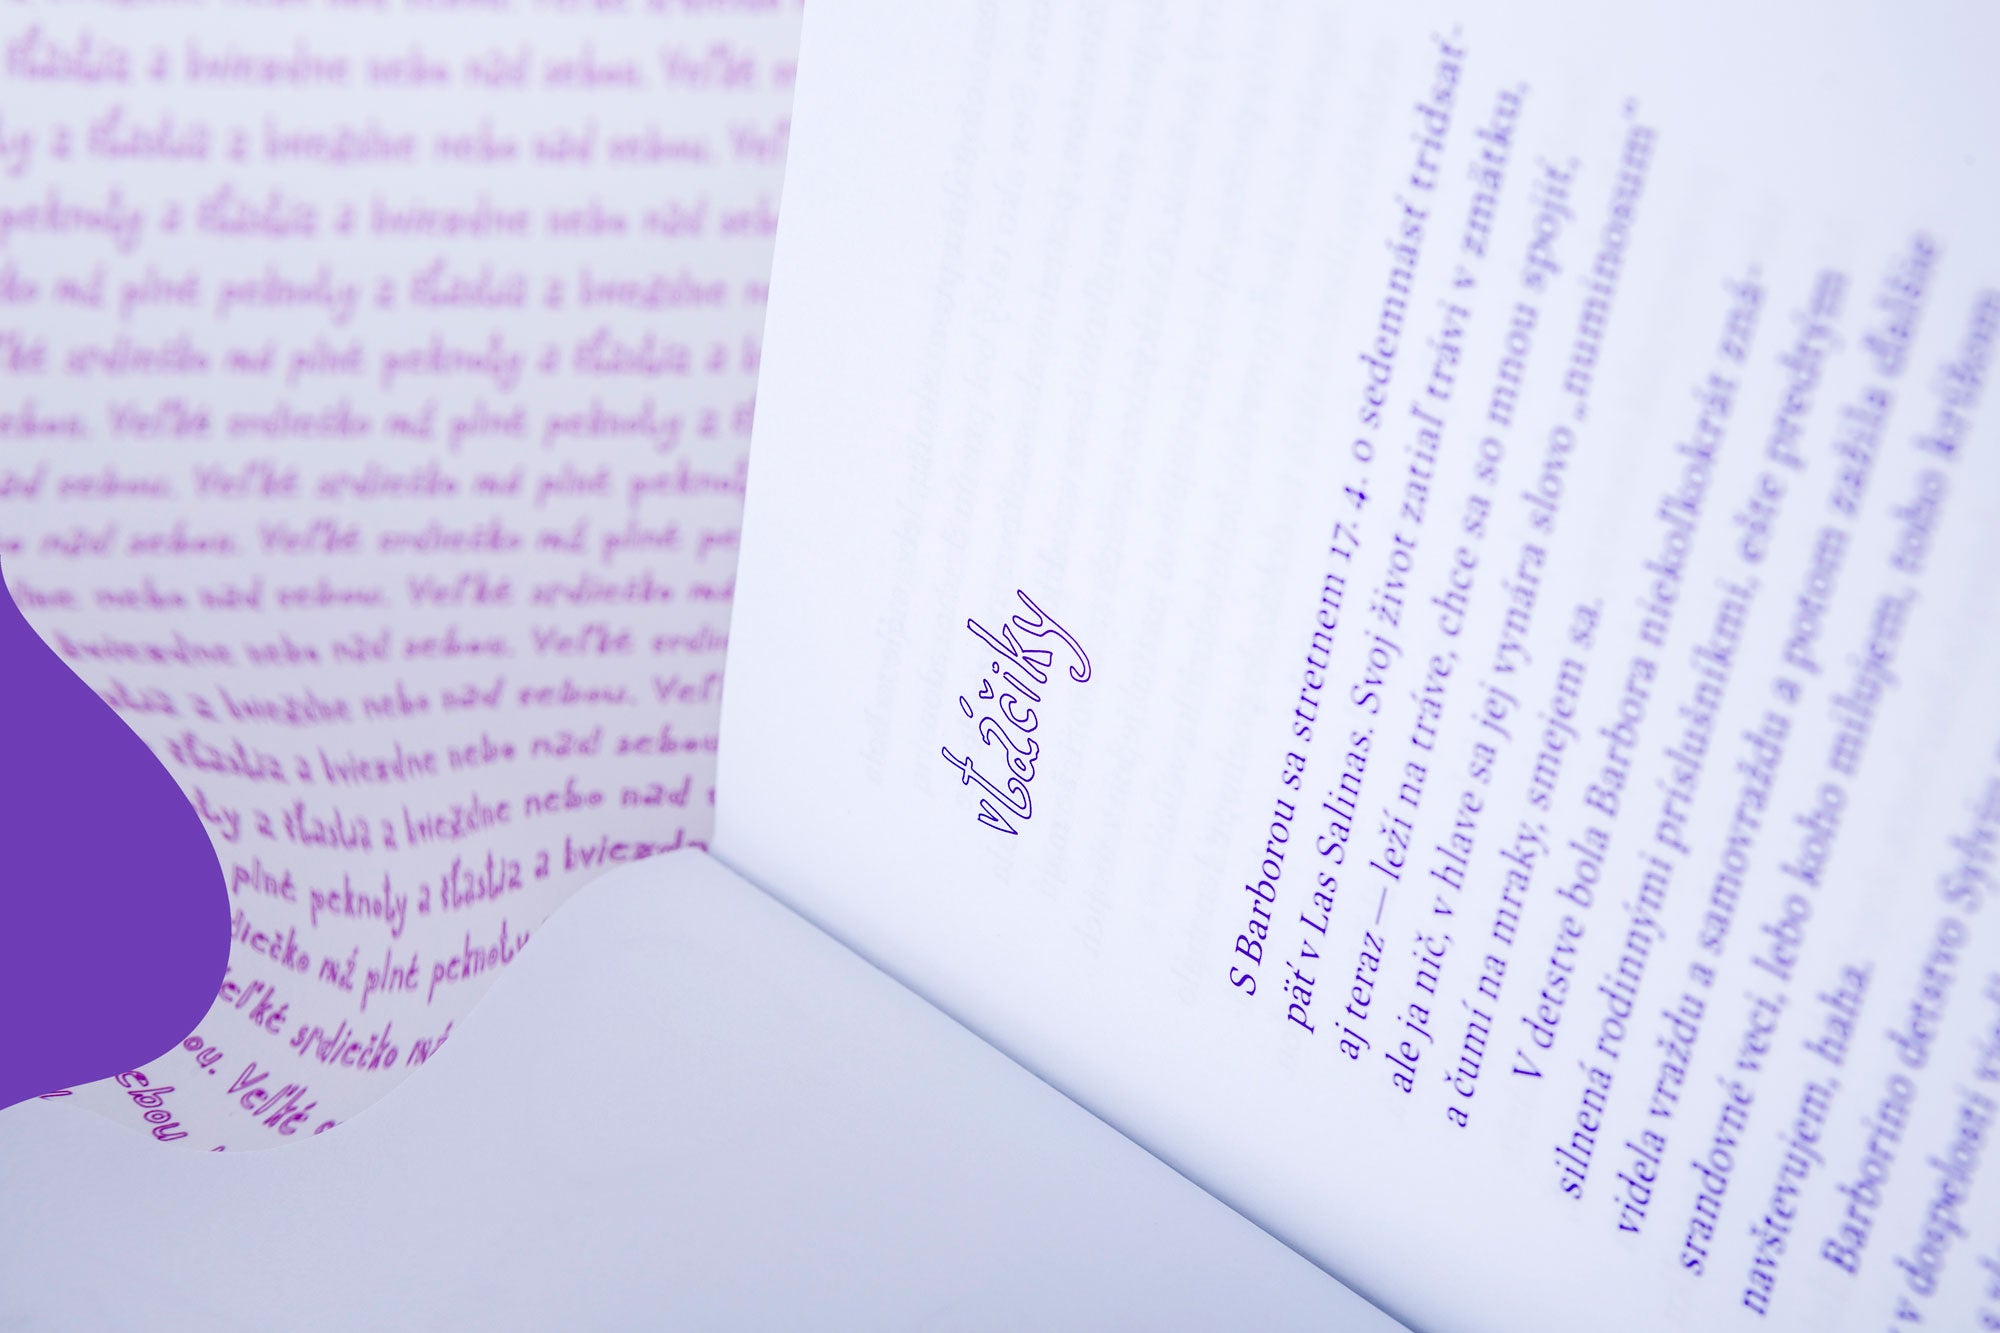 šťastia a hviezdne nebo nad sebou. Veľké
a šťastia a hviezdne nebo nad sebou. Veľ
peknoty a šťastia a hviezdne nebo nad sebo
má plné peknoty a šťastia a hviezdne n
srdiečko má plné peknoty a šťastia a h
sebou. Veľké srdiečko má plné peknoty a
nad sebou. Veľké srdiečko má plné peknoty
nad sebou. Veľké srdiečko má plné pe
nebo nad sebou. Veľké srdiečko má
hviezdne nebo nad sebou. Veľké srdi
a hviezdne nebo nad sebou. Veľ
šťastia a hviezdne nebo nad sebou
ty a šťastia a hviezdne nebo nad
plné peknoty a šťastia a hviezdn
diečko má plné peknoty
eľké srdiečko má
ou. Veľké s
ebou
vtáčiky
S Barborou sa stretnem 17. 4. o sedemnásť tridsať-
päť v Las Salinas. Svoj život zatiaľ trávi v zmätku,
aj teraz — leží na tráve, chce sa so mnou spojiť,
ale ja nič, v hlave sa jej vynára slovo „numinosum“
a čumí na mraky, smejem sa.
V detstve bola Barbora niekoľkokrát zná-
silnená rodinnými príslušníkmi, ešte predtým
videla vraždu a samovraždu a potom zažila ďalšie
srandovné veci, lebo koho milujem, toho krížom
navštevujem, haha.
Barborino detstvo
v dospelosti